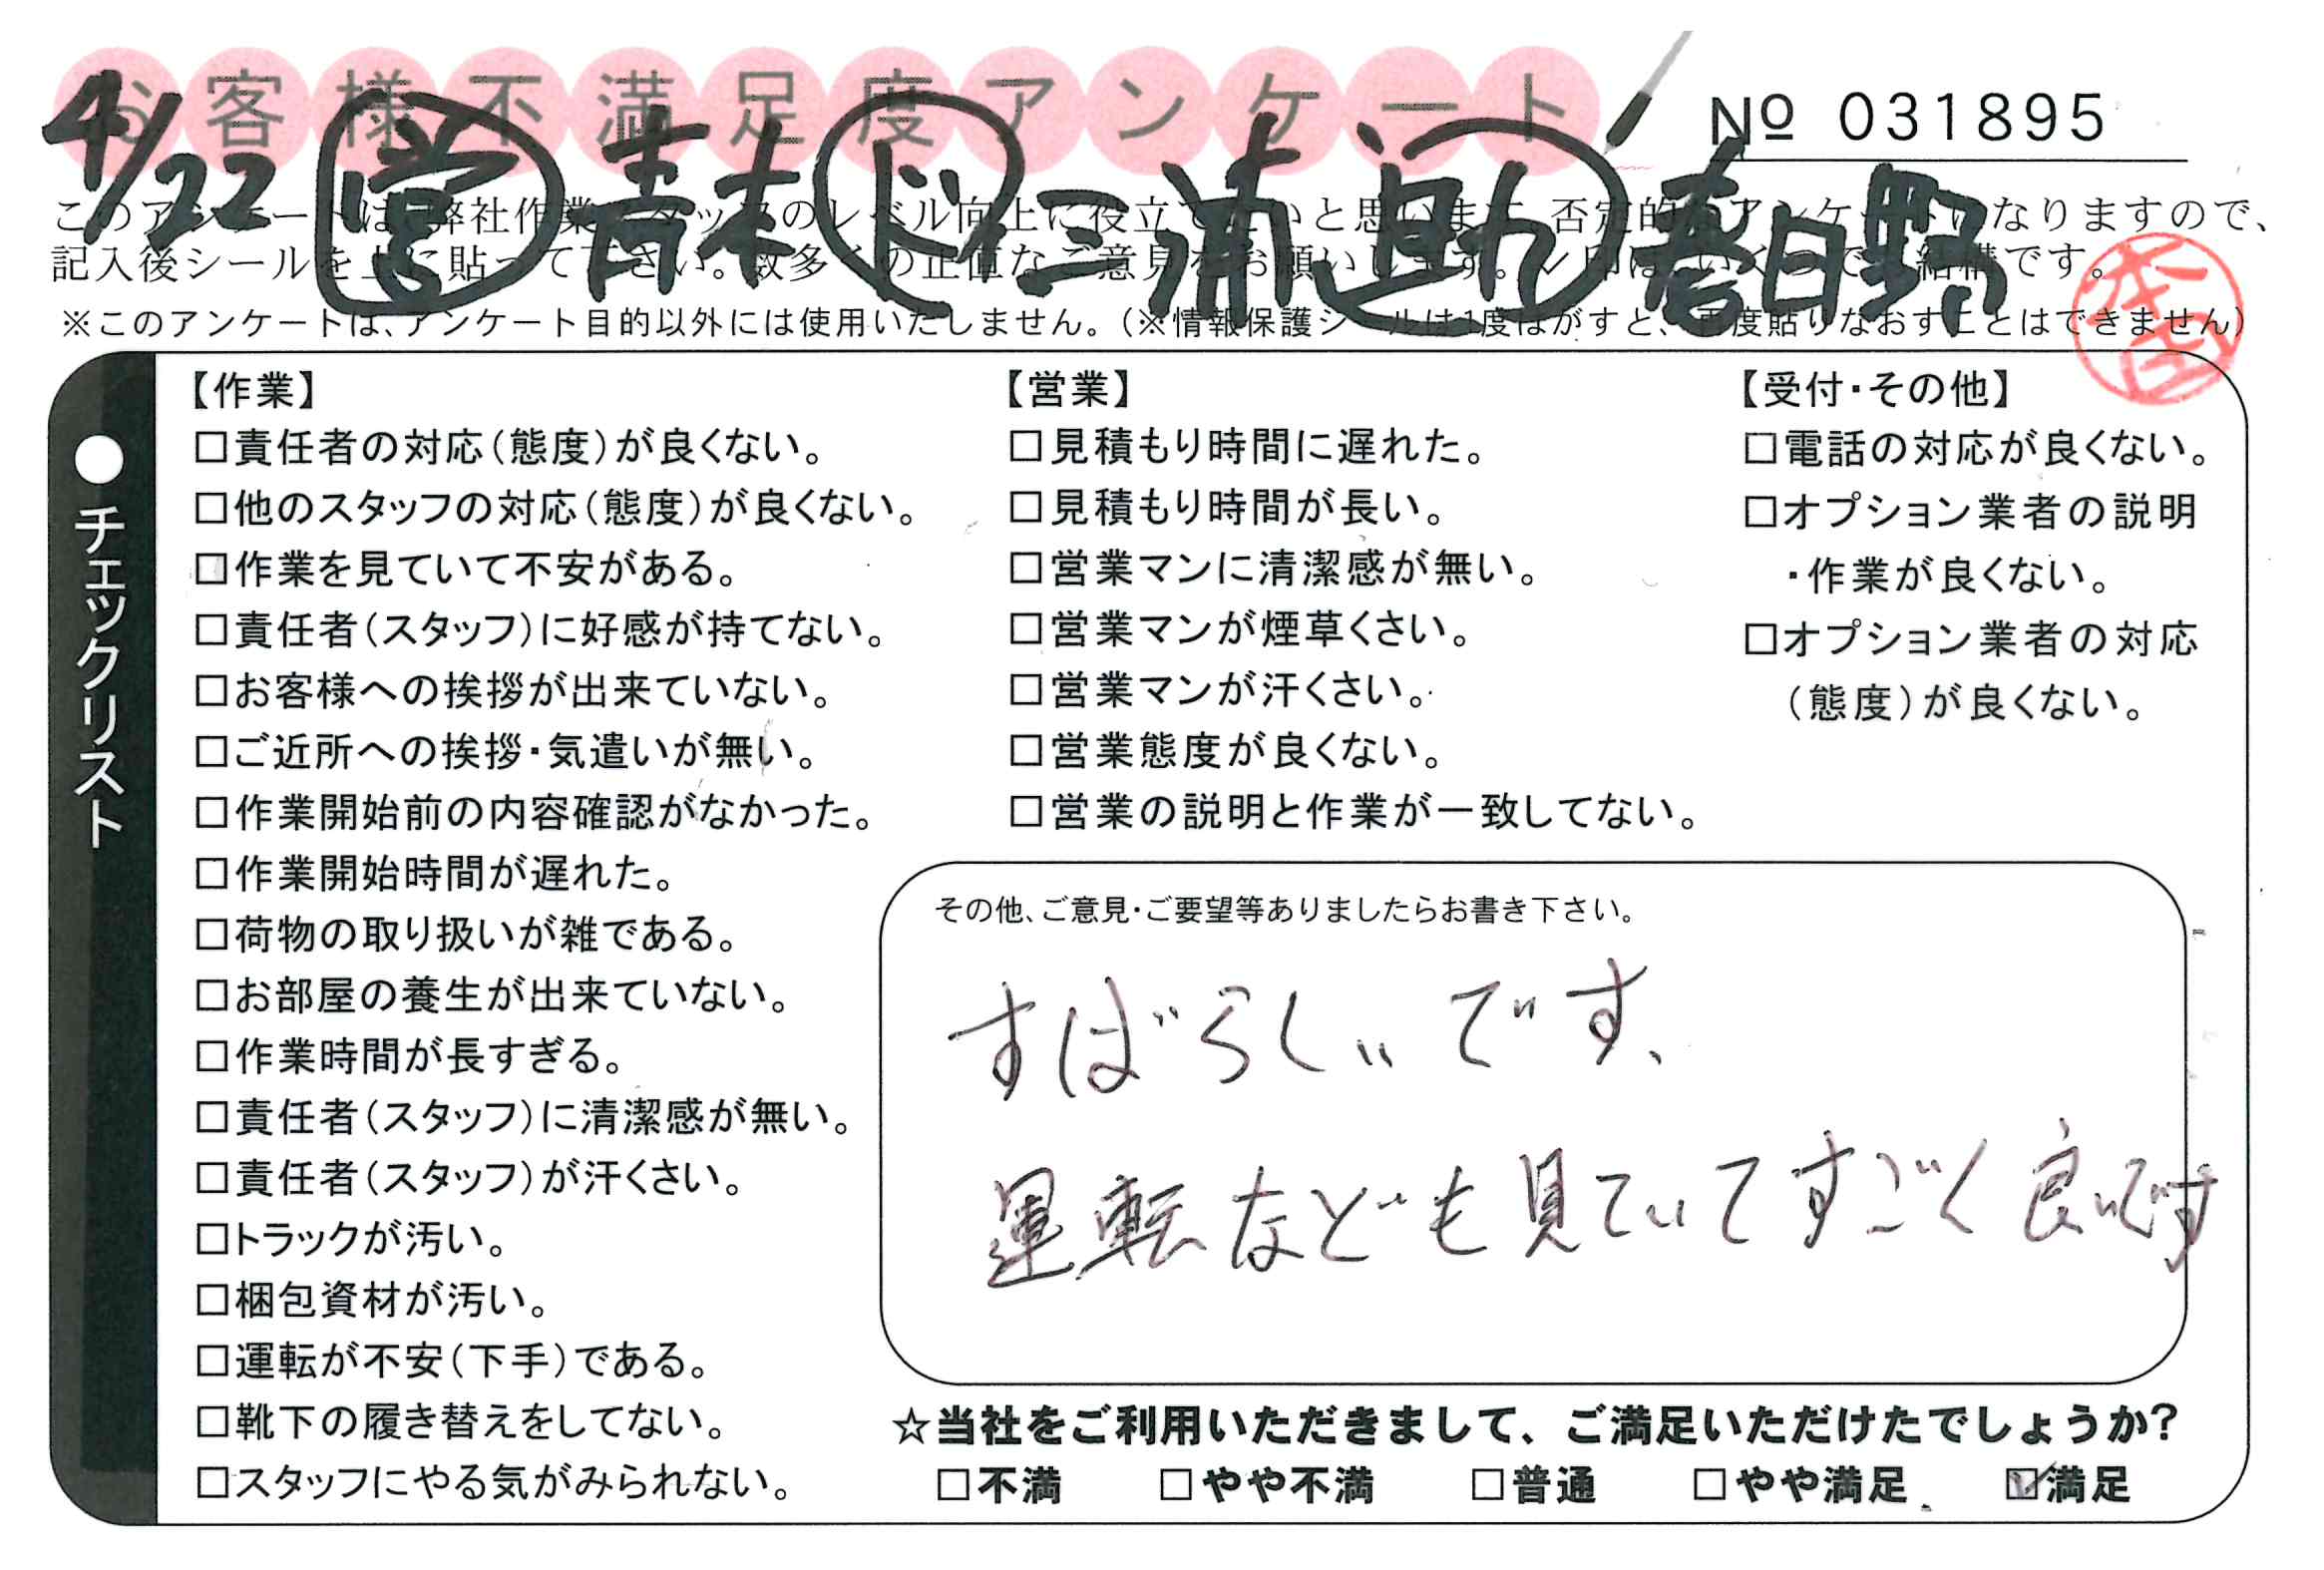 お客様不満足度アンケート
№ 031895
4/22 営 青木 ド 三浦 助 春日野
このアンケートは、弊社作業スタッフのレベル向上に役立てたいと思います。否定的なアンケートになりますので、
記入後シールを上に貼って下さい。数多くの正直なご意見をお願いします。レ印は、いくつでも結構です。
※このアンケートは、アンケート目的以外には使用いたしません。(※情報保護シールは1度はがすと、再度貼りなおすことはできません)
●チェックリスト
【作業】
□責任者の対応(態度)が良くない。
□他のスタッフの対応(態度)が良くない。
□作業を見ていて不安がある。
□責任者(スタッフ)に好感が持てない。
□お客様への挨拶が出来ていない。
□ご近所への挨拶・気遣いが無い。
□作業開始前の内容確認がなかった。
□作業開始時間が遅れた。
□荷物の取り扱いが雑である。
□お部屋の養生が出来ていない。
□作業時間が長すぎる。
□責任者(スタッフ)に清潔感が無い。
□責任者(スタッフ)が汗くさい。
□トラックが汚い。
□梱包資材が汚い。
□運転が不安(下手)である。
□靴下の履き替えをしてない。
□スタッフにやる気がみられない。
【営業】
□見積もり時間に遅れた。
□見積もり時間が長い。
□営業マンに清潔感が無い。
□営業マンが煙草くさい。
□営業マンが汗くさい。
□営業態度が良くない。
□営業の説明と作業が一致してない。
【受付・その他】
□電話の対応が良くない。
□オプション業者の説明
・作業が良くない。
□オプション業者の対応
(態度)が良くない。
その他、ご意見・ご要望等ありましたらお書き下さい。
すばらしいです、
運転なども見ていてすごく良いです
☆当社をご利用いただきまして、ご満足いただけたでしょうか?
□不満 □やや不満 □普通 □やや満足 ☑満足